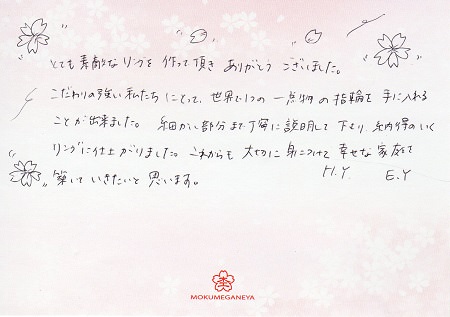 とても素敵なリングを作って頂きありがとうございました。
こだわりの強い私たちにとって、世界で1つの一点物の指輪を手に入れる
ことが出来ました。細かい部分まで丁寧に説明して下さり、納得のいく
リングに仕上がりました。これからも大切に身につけて幸せな家庭を
築いていきたいと思います。
H.Y. E.Y
MOKUMEGANEYA